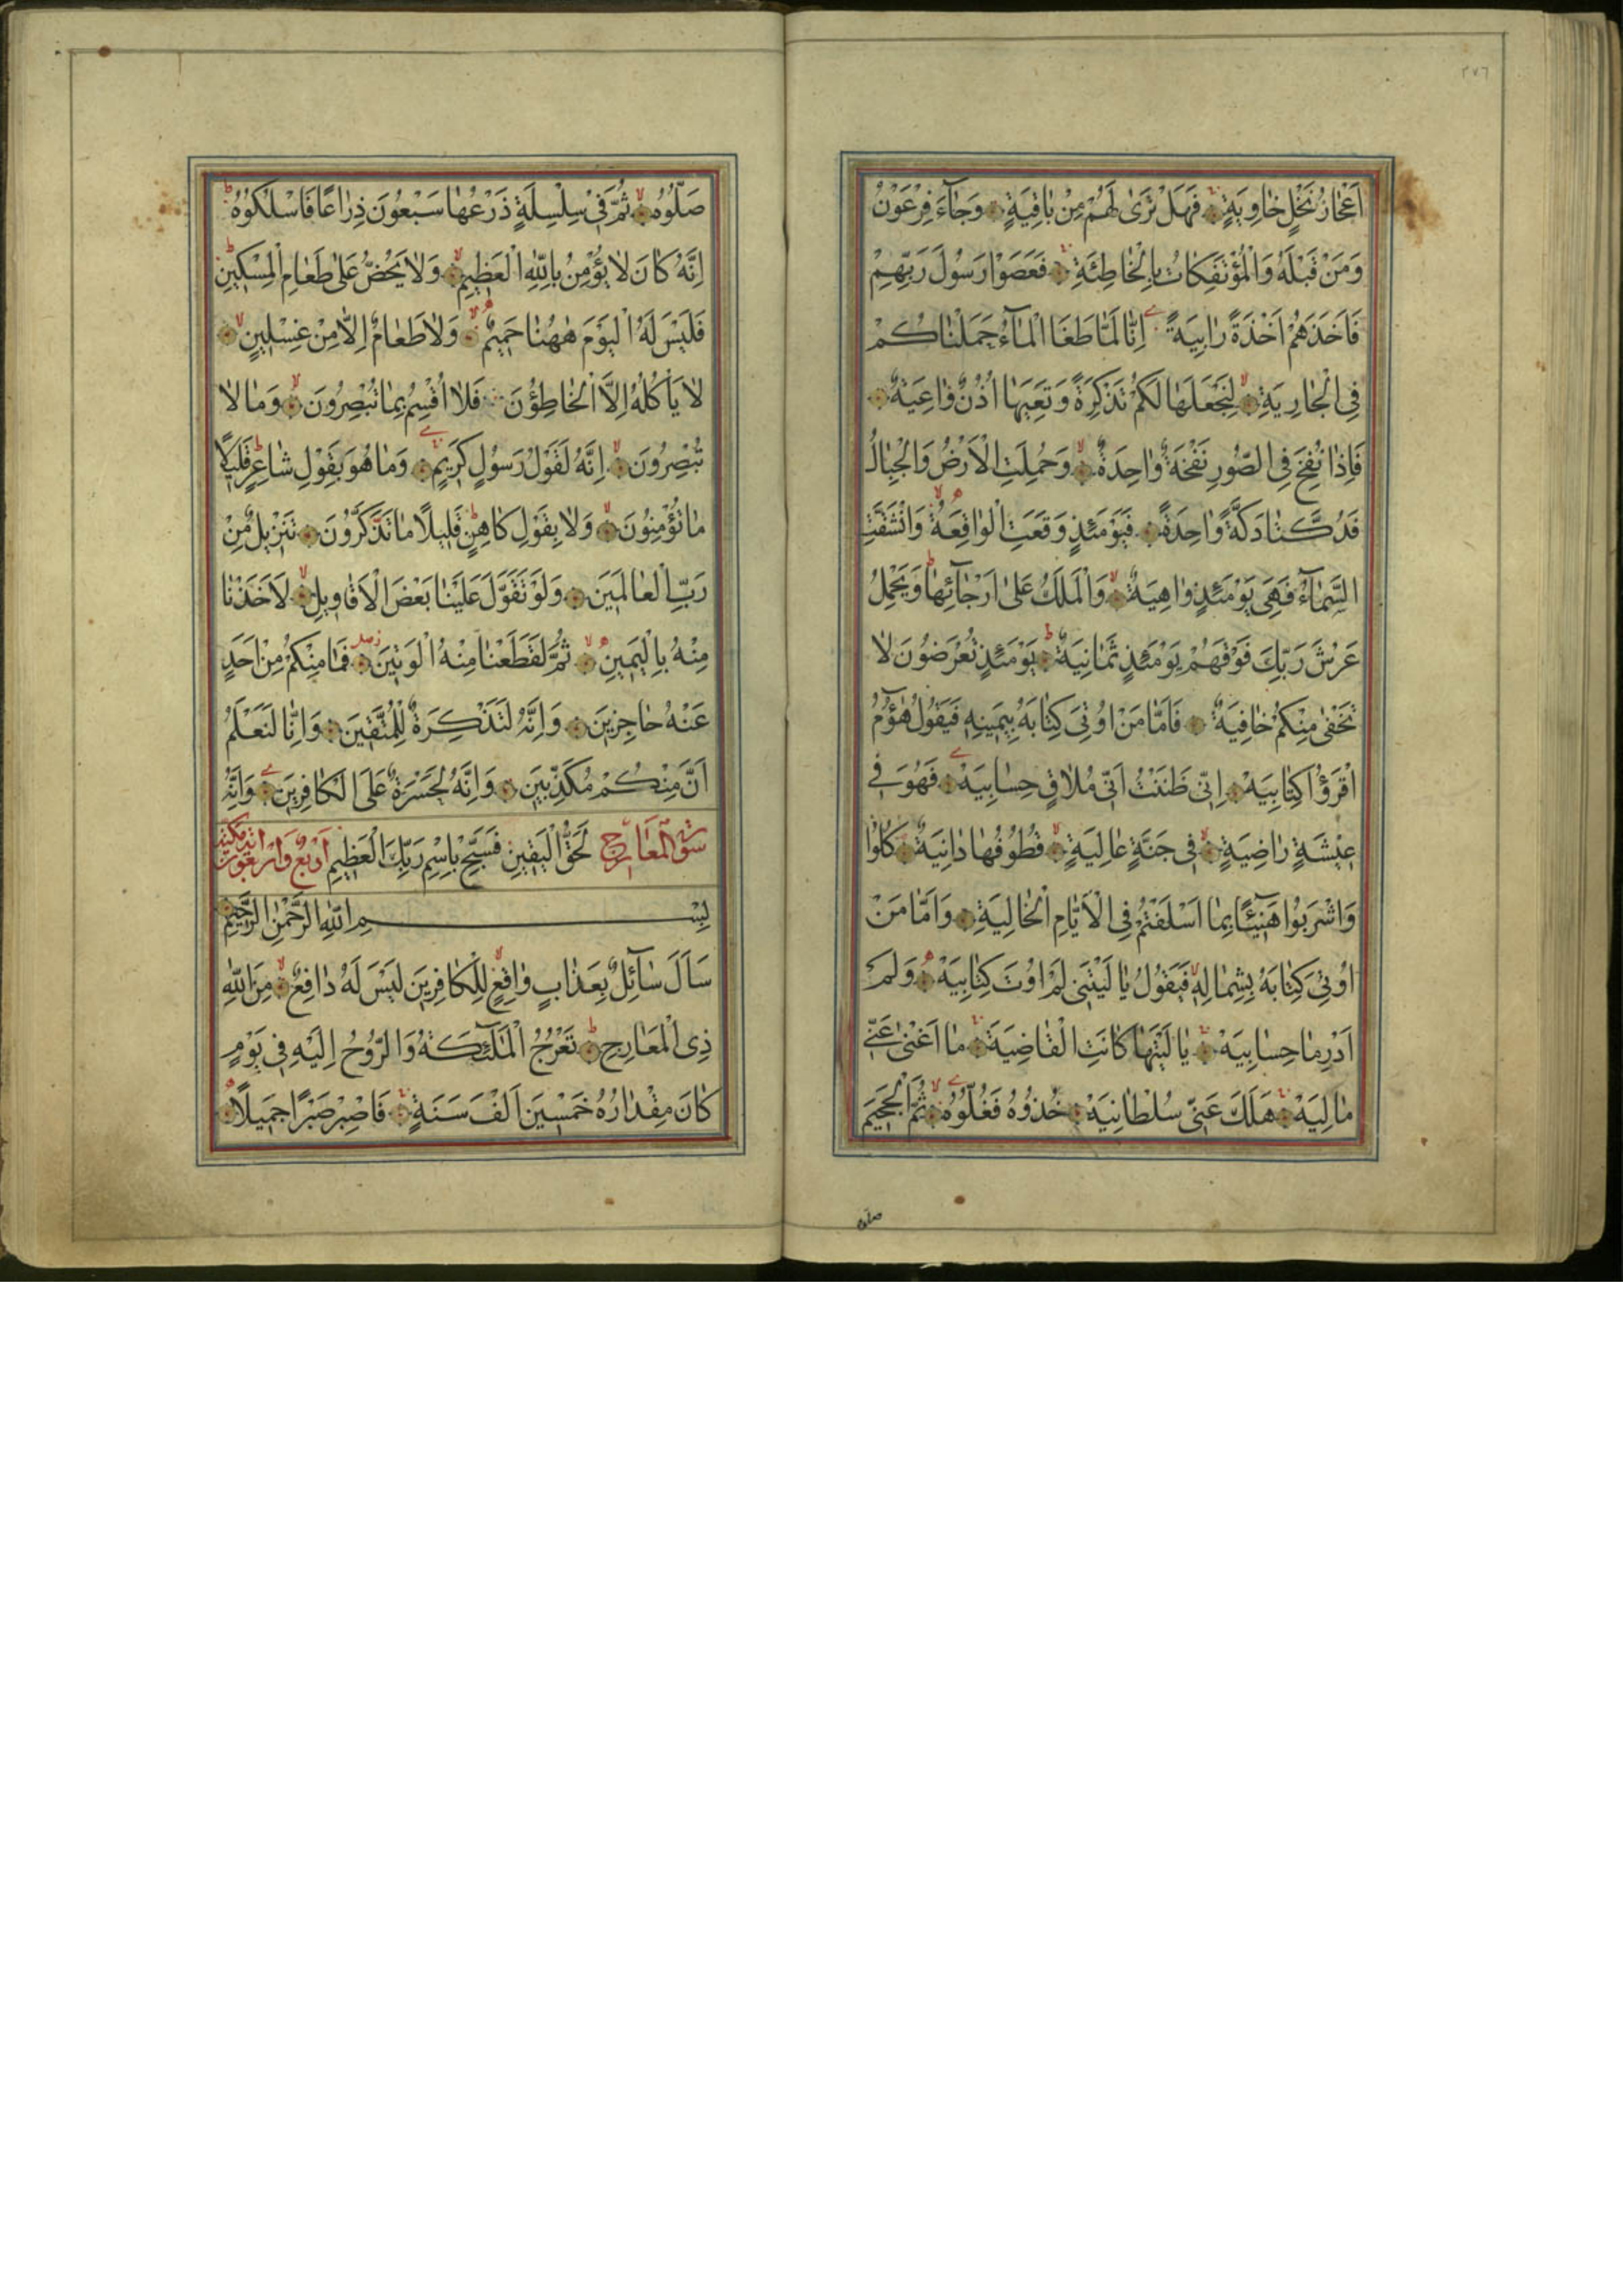 ٢٧٦
اَعْجَازُ نَخْلٍ خَاوِيَةٍ فَهَلْ تَرٰى لَهُمْ مِنْ بَاقِيَةٍ وَجَآءَ فِرْعَوْنُ
وَمَنْ قَبْلَهُ وَالْمُؤْتَفِكَاتُ بِالْخَاطِئَةِ فَعَصَوْا رَسُولَ رَبِّهِمْ
فَاَخَذَهُمْ اَخْذَةً رَابِيَةً اِنَّا لَمَّا طَغَا الْمَآءُ حَمَلْنَاكُمْ
فِى الْجَارِيَةِ لِنَجْعَلَهَا لَكُمْ تَذْكِرَةً وَتَعِيَهَا اُذُنٌ وَاعِيَةٌ
فَاِذَا نُفِخَ فِى الصُّورِ نَفْخَةٌ وَاحِدَةٌ وَحُمِلَتِ الْاَرْضُ وَالْجِبَالُ
فَدُكَّتَا دَكَّةً وَاحِدَةً فَيَوْمَئِذٍ وَقَعَتِ الْوَاقِعَةُ وَانْشَقَّتِ
السَّمَآءُ فَهِىَ يَوْمَئِذٍ وَاهِيَةٌ وَالْمَلَكُ عَلٰى اَرْجَآئِهَا وَيَحْمِلُ
عَرْشَ رَبِّكَ فَوْقَهُمْ يَوْمَئِذٍ ثَمَانِيَةٌ يَوْمَئِذٍ تُعْرَضُونَ لَا
تَخْفٰى مِنْكُمْ خَافِيَةٌ فَاَمَّا مَنْ اُوتِىَ كِتَابَهُ بِيَمِينِهِ فَيَقُولُ هَآؤُمُ
اقْرَؤُا كِتَابِيَهْ اِنِّى ظَنَنْتُ اَنِّى مُلَاقٍ حِسَابِيَهْ فَهُوَ فِى
عِيشَةٍ رَاضِيَةٍ فِى جَنَّةٍ عَالِيَةٍ قُطُوفُهَا دَانِيَةٌ كُلُوا
وَاشْرَبُوا هَنِيئًا بِمَا اَسْلَفْتُمْ فِى الْاَيَّامِ الْخَالِيَةِ وَاَمَّا مَنْ
اُوتِىَ كِتَابَهُ بِشِمَالِهِ فَيَقُولُ يَا لَيْتَنِى لَمْ اُوتَ كِتَابِيَهْ وَلَمْ
اَدْرِ مَا حِسَابِيَهْ يَا لَيْتَهَا كَانَتِ الْقَاضِيَةَ مَا اَغْنٰى عَنِّى
مَالِيَهْ هَلَكَ عَنِّى سُلْطَانِيَهْ خُذُوهُ فَغُلُّوهُ ثُمَّ الْجَحِيمَ
صلوه
صَلُّوهُ ثُمَّ فِى سِلْسِلَةٍ ذَرْعُهَا سَبْعُونَ ذِرَاعًا فَاسْلُكُوهُ
اِنَّهُ كَانَ لَا يُؤْمِنُ بِاللّٰهِ الْعَظِيمِ وَلَا يَحُضُّ عَلٰى طَعَامِ الْمِسْكِينِ
فَلَيْسَ لَهُ الْيَوْمَ هٰهُنَا حَمِيمٌ وَلَا طَعَامٌ اِلَّا مِنْ غِسْلِينٍ
لَا يَأْكُلُهُ اِلَّا الْخَاطِؤُنَ فَلَا اُقْسِمُ بِمَا تُبْصِرُونَ وَمَا لَا
تُبْصِرُونَ اِنَّهُ لَقَوْلُ رَسُولٍ كَرِيمٍ وَمَا هُوَ بِقَوْلِ شَاعِرٍ قَلِيلًا
مَا تُؤْمِنُونَ وَلَا بِقَوْلِ كَاهِنٍ قَلِيلًا مَا تَذَكَّرُونَ تَنْزِيلٌ مِنْ
رَبِّ الْعَالَمِينَ وَلَوْ تَقَوَّلَ عَلَيْنَا بَعْضَ الْاَقَاوِيلِ لَاَخَذْنَا
مِنْهُ بِالْيَمِينِ ثُمَّ لَقَطَعْنَا مِنْهُ الْوَتِينَ فَمَا مِنْكُمْ مِنْ اَحَدٍ
عَنْهُ حَاجِزِينَ وَاِنَّهُ لَتَذْكِرَةٌ لِلْمُتَّقِينَ وَاِنَّا لَنَعْلَمُ
اَنَّ مِنْكُمْ مُكَذِّبِينَ وَاِنَّهُ لَحَسْرَةٌ عَلَى الْكَافِرِينَ وَاِنَّهُ
سورة المعارج لَحَقُّ الْيَقِينِ فَسَبِّحْ بِاسْمِ رَبِّكَ الْعَظِيمِ اربع واربعون آية مكية
بِسْمِ اللّٰهِ الرَّحْمٰنِ الرَّحِيمِ
سَاَلَ سَآئِلٌ بِعَذَابٍ وَاقِعٍ لِلْكَافِرِينَ لَيْسَ لَهُ دَافِعٌ مِنَ اللّٰهِ
ذِى الْمَعَارِجِ تَعْرُجُ الْمَلٰٓئِكَةُ وَالرُّوحُ اِلَيْهِ فِى يَوْمٍ
كَانَ مِقْدَارُهُ خَمْسِينَ اَلْفَ سَنَةٍ فَاصْبِرْ صَبْرًا جَمِيلًا